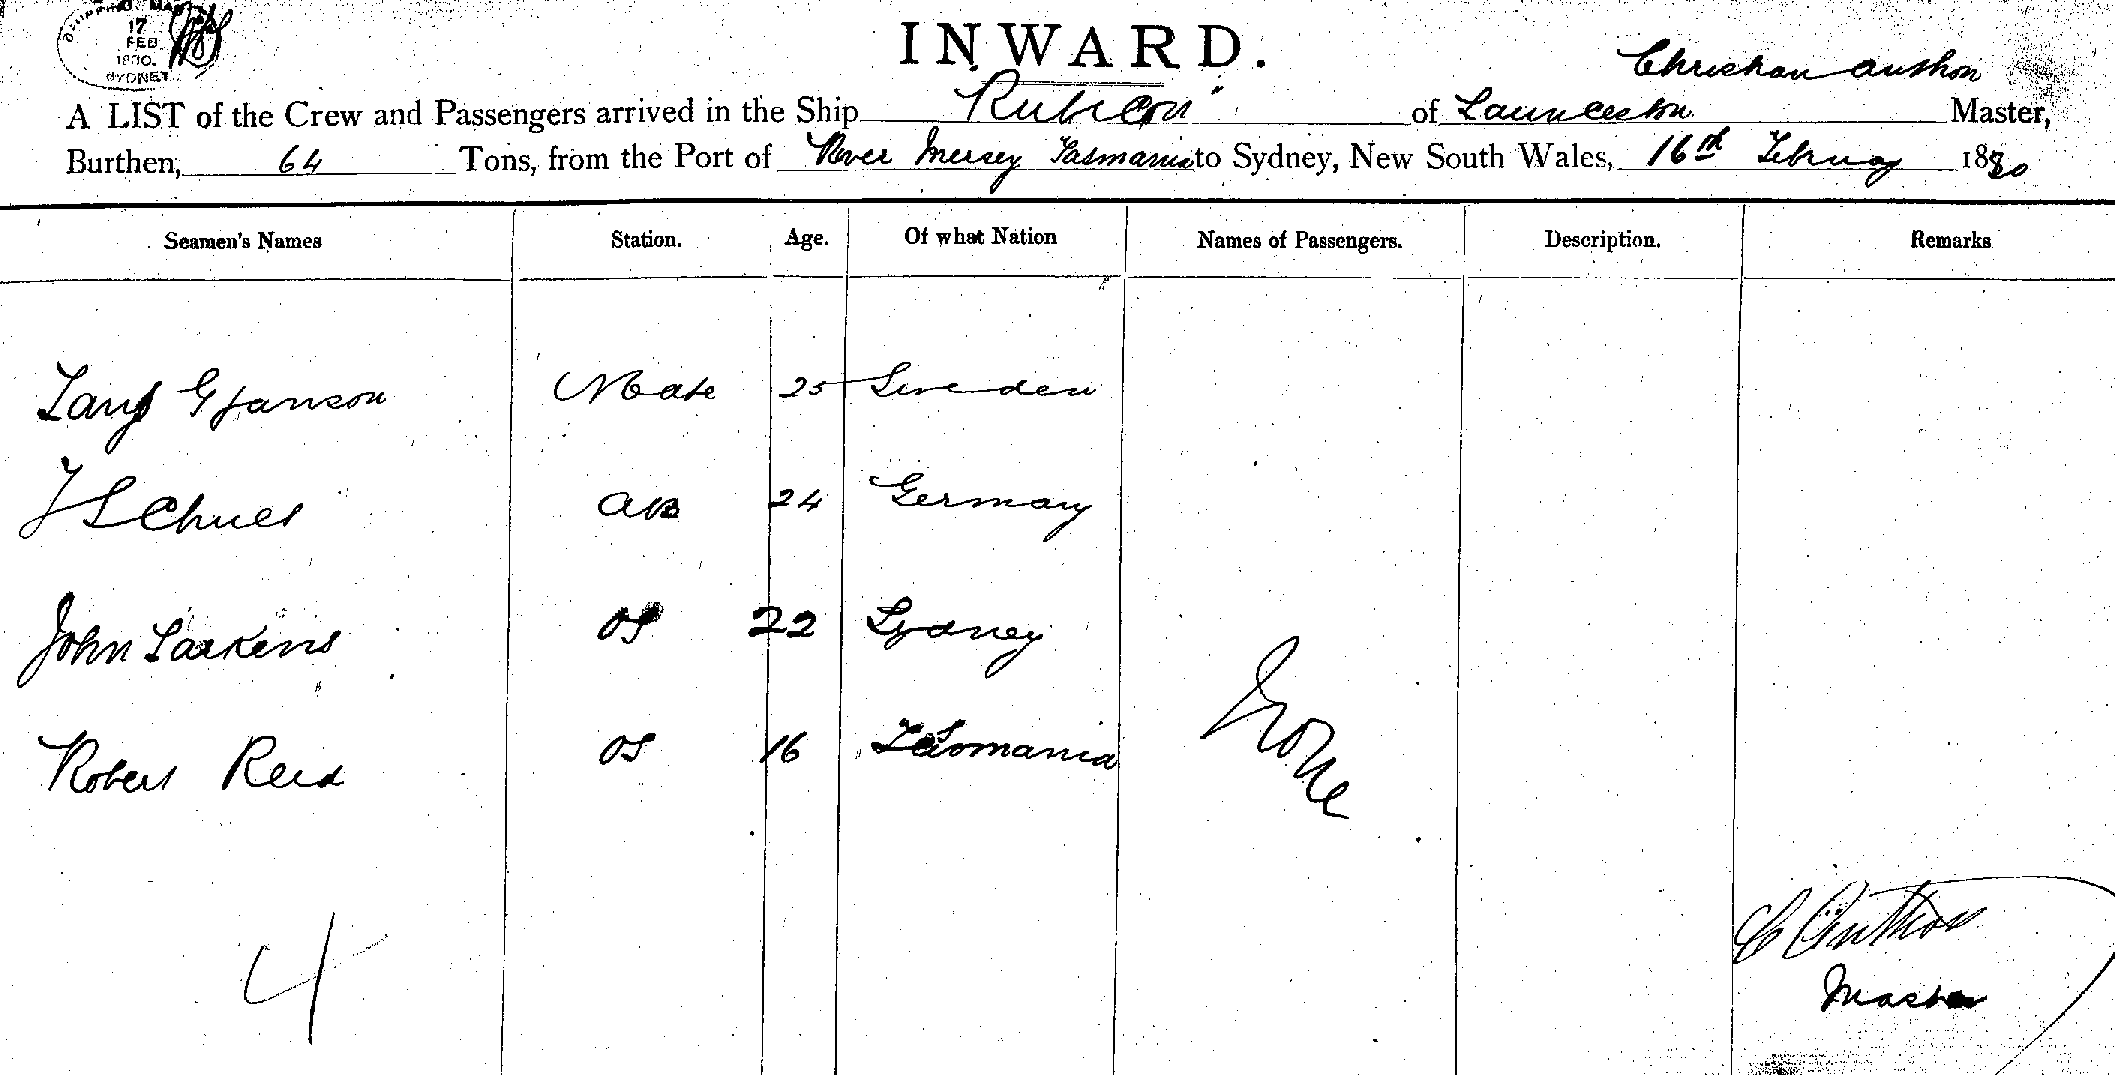 SHIPPING MAS
17
FEB
1880.
SYDNEY
INWARD.
Christian Anthon
A LIST of the Crew and Passengers arrived in the Ship "Rubicon" of Launceston Master,
Burthen, 64 Tons, from the Port of River Mersey Tasmania to Sydney, New South Wales, 16th February 1880
Seamen's Names Station. Age. Of what Nation Names of Passengers. Description. Remarks
Mate 25 Sweden
AB 24 Germany
John Larkins OS 22 Sydney
None
Robert Reid OS 16 Tasmania
4
C Anthon
Master